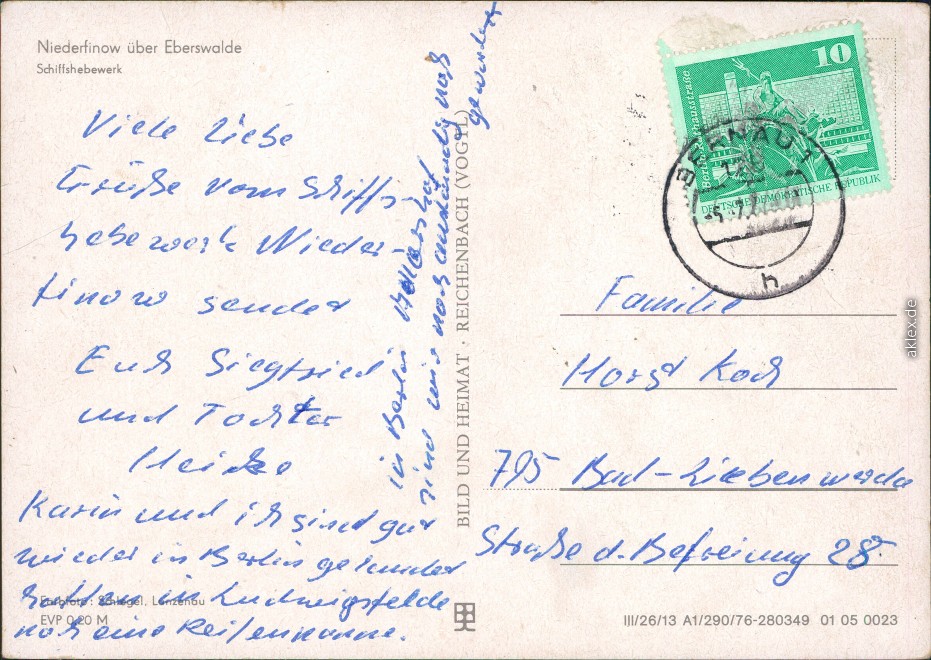 Niederfinow über Eberswalde
Schiffshebewerk
Viele liebe
Grüße vom Schiffs-
hebewerk Nieder-
finow sendet
Euch Siegfried
und Tochter
Heike
Karin und ich sind gut
wieder in Berlin gelandet
hatten in Ludwigsfelde
noch eine Reifenpanne.
in Berlin
sind wir noch anständig naß
geworden
Farbfoto: Schlegel, Lunzenau
EVP 0,20 M
BILD UND HEIMAT · REICHENBACH (VOGTL)
10
DEUTSCHE DEMOKRATISCHE REPUBLIK
BERNAU 1
h
Familie
Horst Koch
795 Bad-Liebenwerda
Straße d. Befreiung 28
III/26/13 A1/290/76-280349 01 05 0023
aklex.de